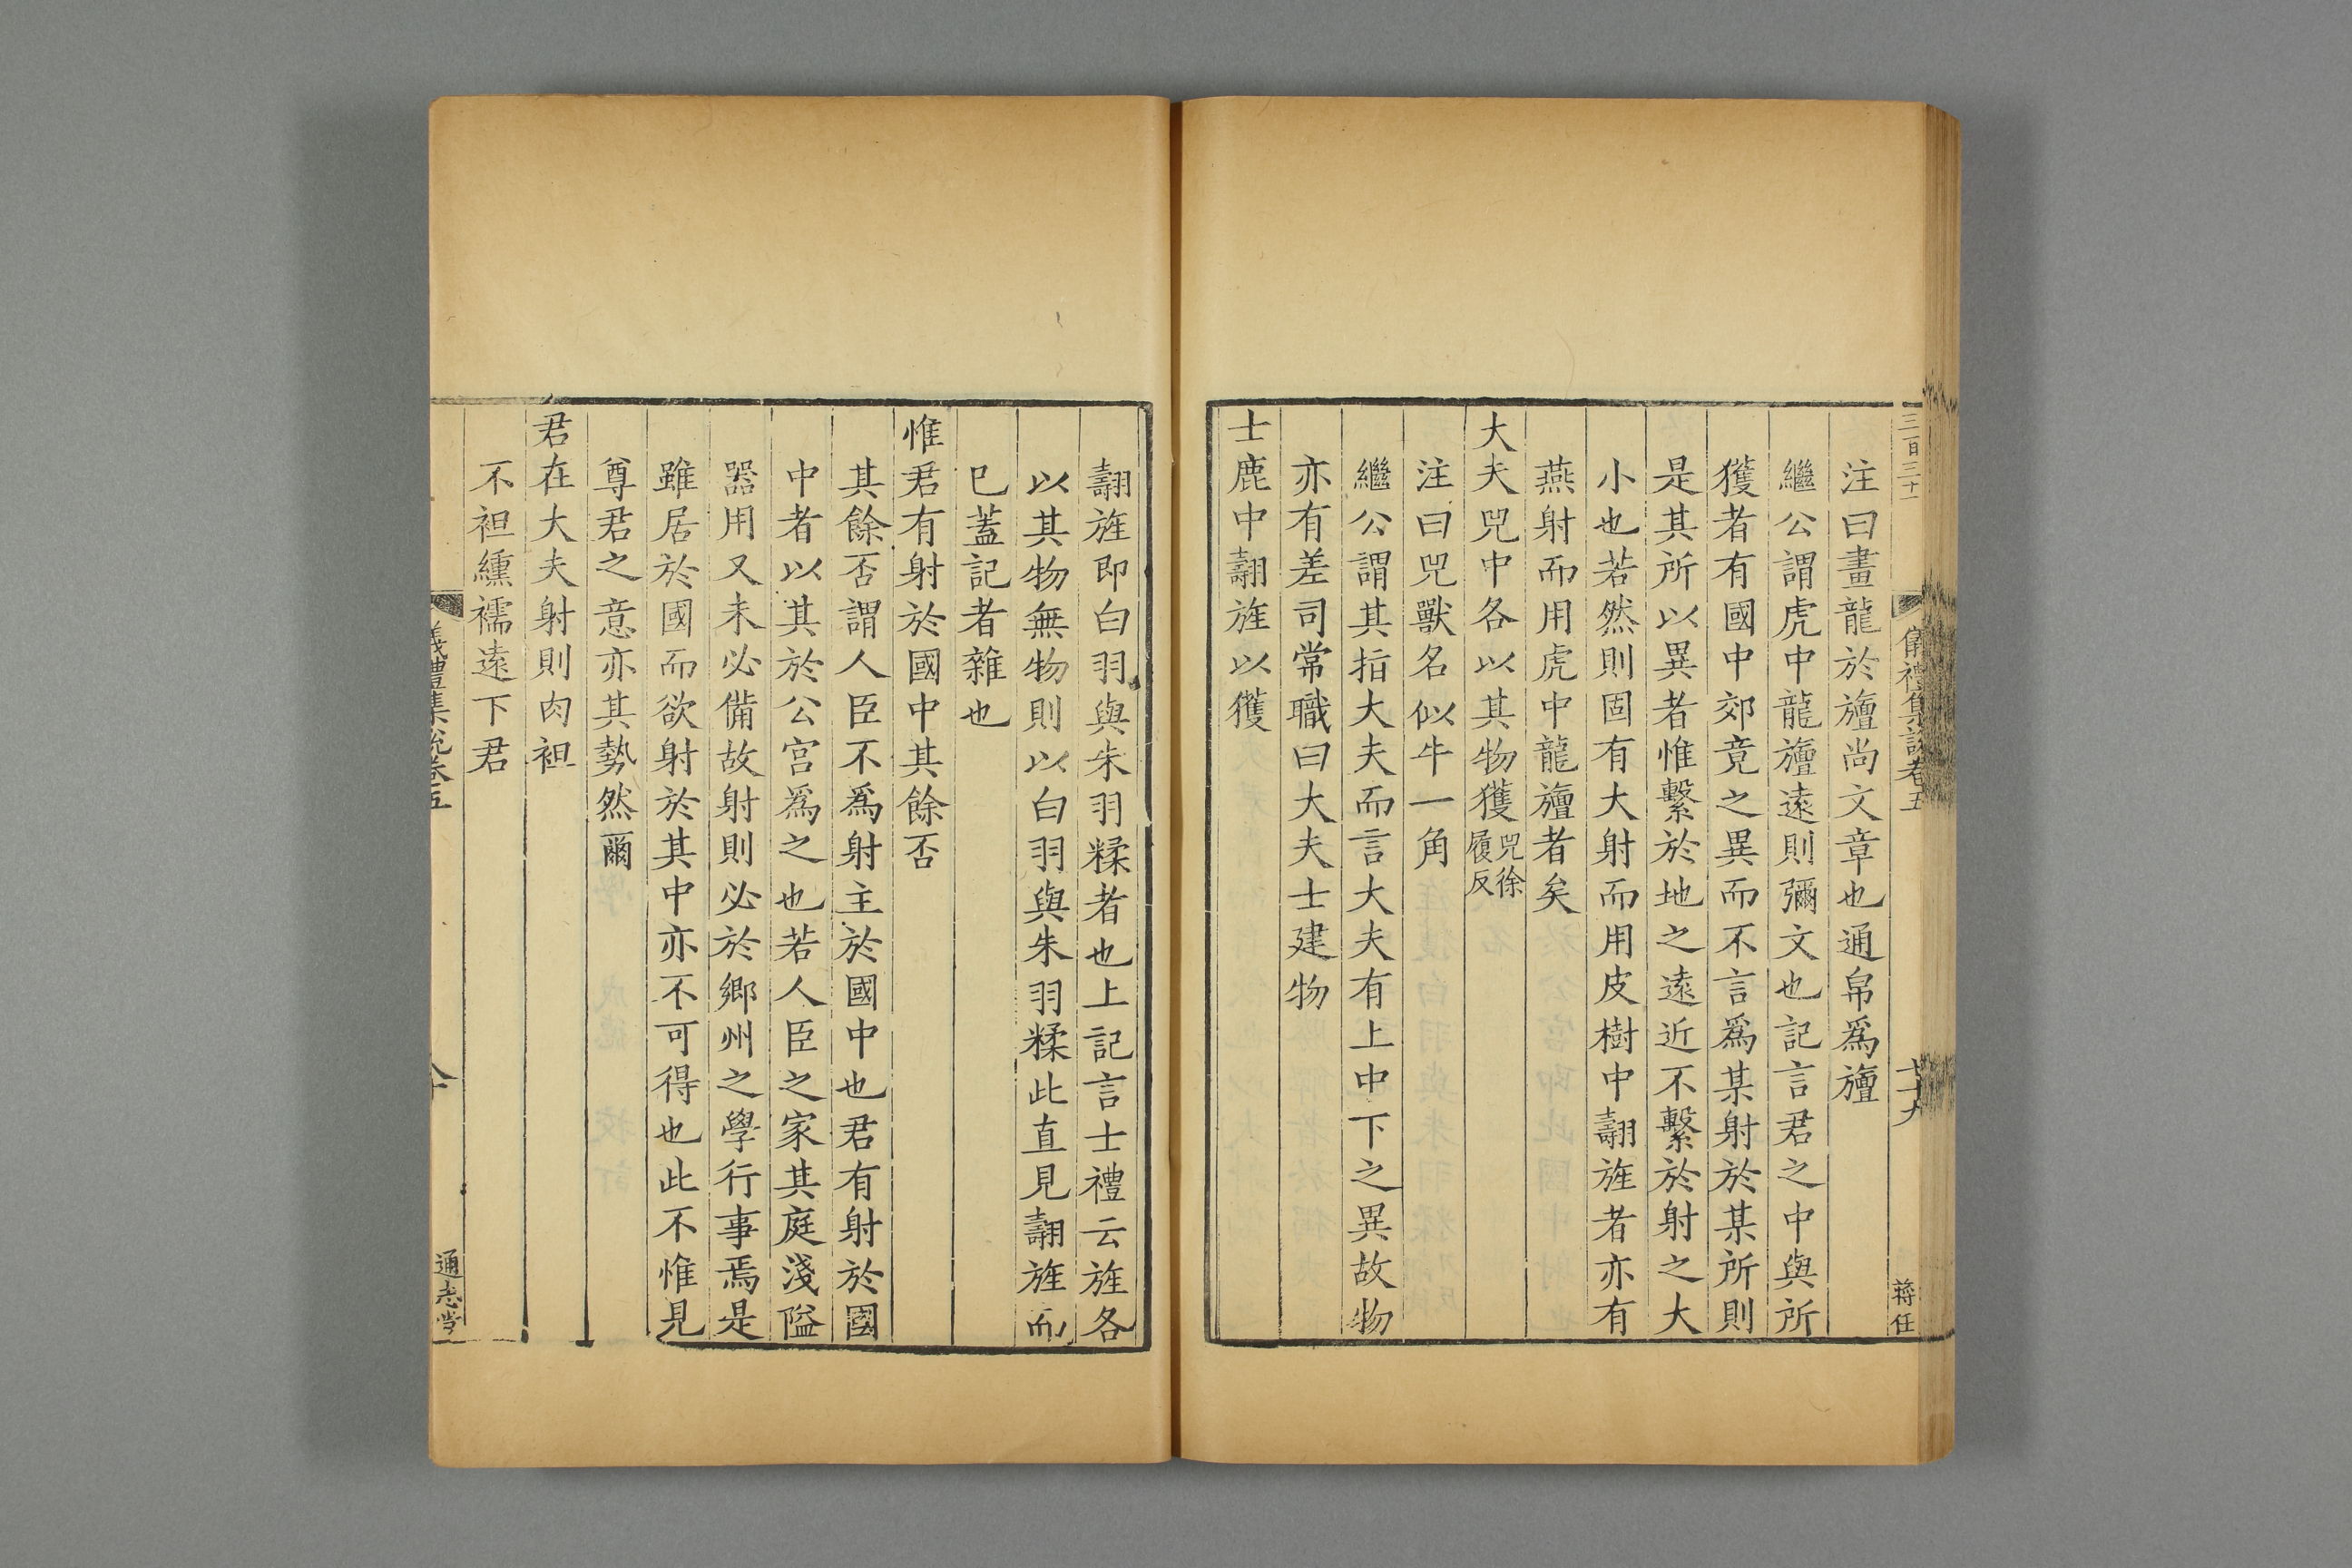 三百三十一
儀禮集說卷五
七十九
蒋任
注曰畫龍於旜尚文章也通帛爲旜
繼公謂虎中龍旜遠則彌文也記言君之中與所
獲者有國中郊竟之異而不言爲某射於某所則
是其所以異者惟繫於地之遠近不繫於射之大
小也若然則固有大射而用皮樹中翿旌者亦有
燕射而用虎中龍旜者矣
大夫兕中各以其物獲兕徐履反
注曰兕獸名似牛一角
繼公謂其指大夫而言大夫有上中下之異故物
亦有差司常職曰大夫士建物
士鹿中翿旌以獲
翿旌即白羽與朱羽糅者也上記言士禮云旌各
以其物無物則以白羽與朱羽糅此直見翿旌而
已蓋記者雜也
惟君有射於國中其餘否
其餘否謂人臣不爲射主於國中也君有射於國
中者以其於公宮爲之也若人臣之家其庭淺隘
器用又未必備故射則必於鄉州之學行事焉是
雖居於國而欲射於其中亦不可得也此不惟見
尊君之意亦其勢然爾
君在大夫射則肉袒
不袒纁襦遠下君
儀禮集說卷五
八十
通志堂